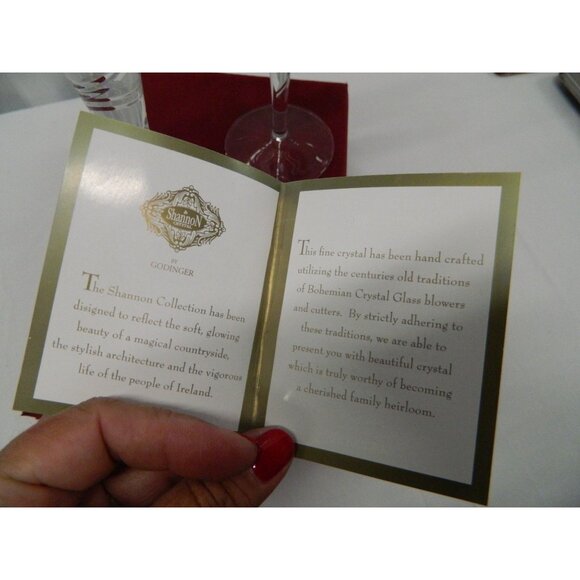 Shannon
CRYSTAL
BY
GODINGER
The Shannon Collection has been
designed to reflect the soft, glowing
beauty of a magical countryside,
the stylish architecture and the vigorous
life of the people of Ireland.
This fine crystal has been hand crafted
utilizing the centuries old traditions
of Bohemian Crystal Glass blowers
and cutters. By strictly adhering to
these traditions, we are able to
present you with beautiful crystal
which is truly worthy of becoming
a cherished family heirloom.